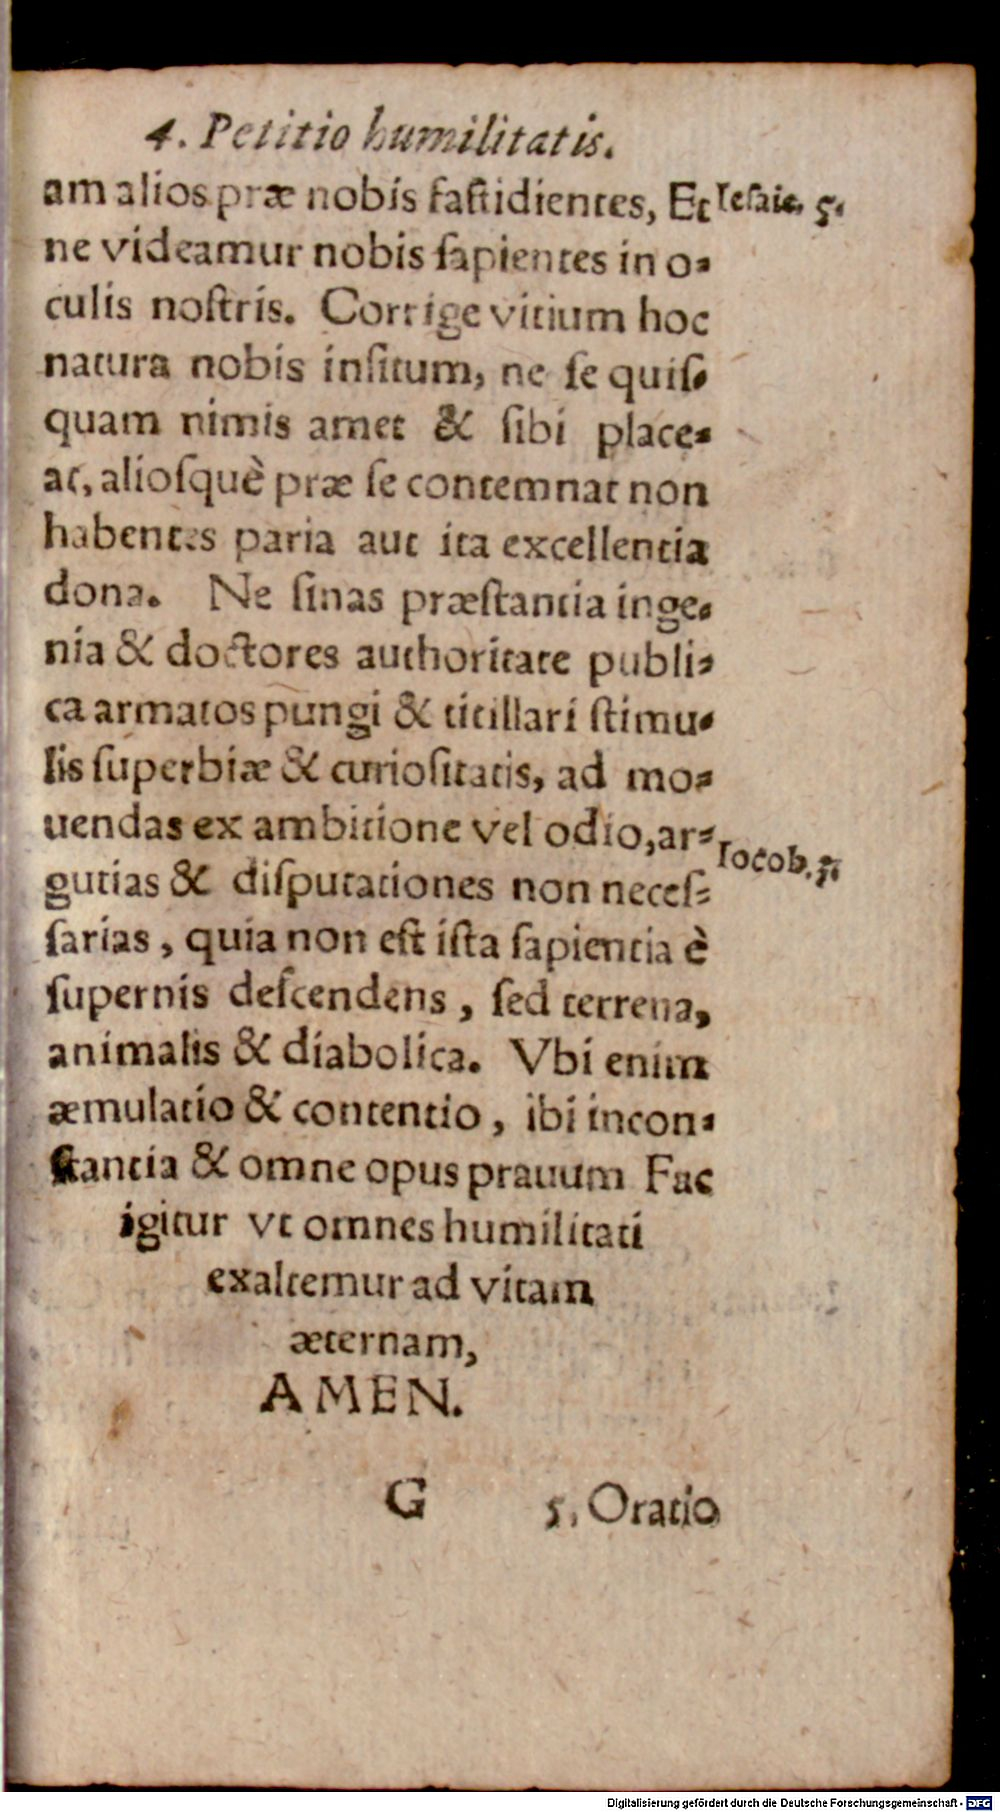 4. Petitio humilitatis.
am alios præ nobis faſtidientes, Et Ieſaie. 5.
ne videamur nobis ſapientes in o-
culis noſtris. Corrige vitium hoc
natura nobis inſitum, ne ſe quiſ-
quam nimis amet & ſibi place-
at, alioſquè præ ſe contemnat non
habentes paria aut ita excellentia
dona. Ne ſinas præſtantia inge-
nia & doctores authoritate publi-
ca armatos pungi & titillari ſtimu-
lis ſuperbiæ & curioſitatis, ad mo-
uendas ex ambitione vel odio, ar-
Iocob. 3.
gutias & diſputationes non neceſ-
ſarias, quia non eſt iſta ſapientia è
ſupernis deſcendens, ſed terrena,
animalis & diabolica. Vbi enim
æmulatio & contentio, ibi incon-
ſtantia & omne opus prauum Fac
igitur vt omnes humilitati
exaltemur ad vitam
æternam,
AMEN.
G 5. Oratio
Digitalisierung gefördert durch die Deutsche Forschungsgemeinschaft - DFG